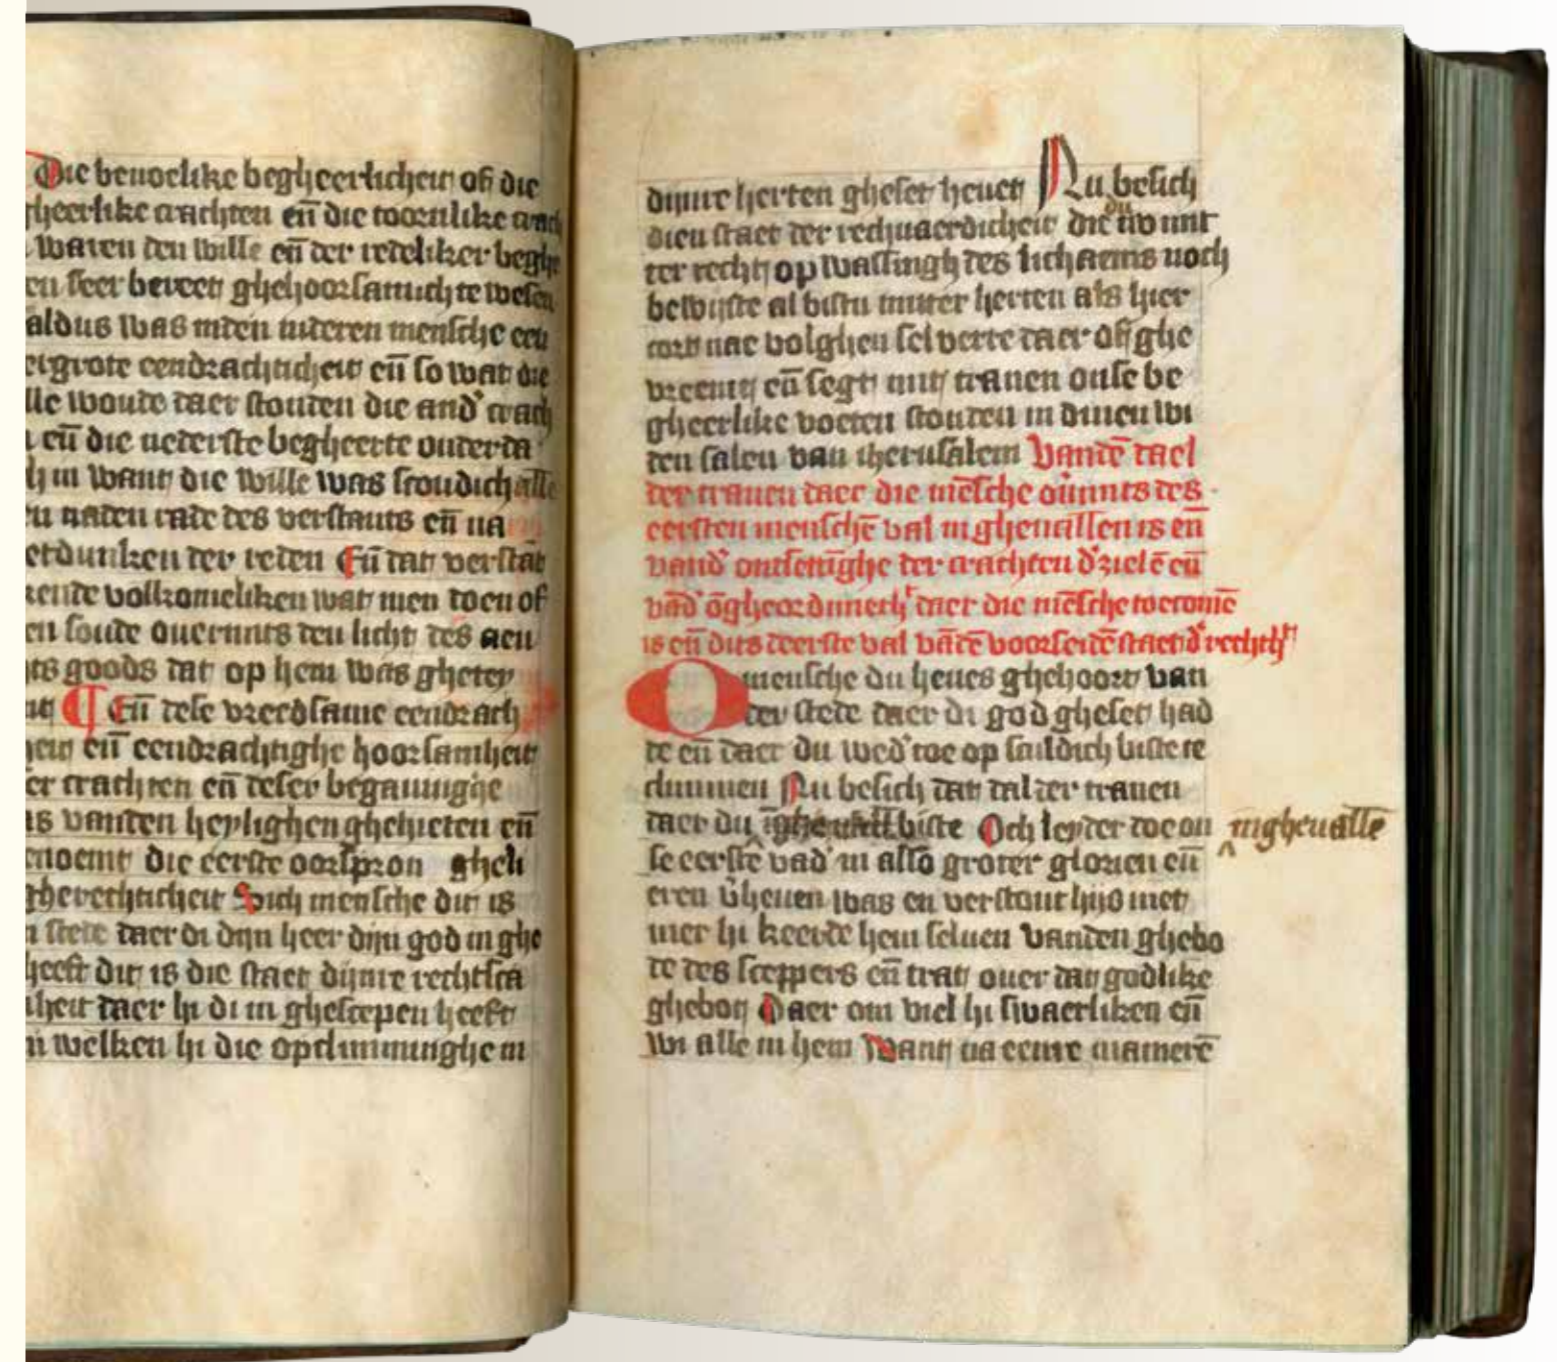 Die beuoelike begheerlicheit of die
gheerlike crachten eñ die toornlike crach
waren den wille eñ der redeliker beghe
en seer bereet ghehoorsamich te wesen
aldus was inden inderen mensche een
grote eendrachticheit eñ so wat die
lle woude daer stonden die and' crach
eñ die nederste begheerte onder da
in want die wille was scoudich alle
naden rade des verstants eñ na
dunken der reden Eñ dat verstãt
kende volkomeliken wat men doen of
en soude ouermits den licht des aen
ts goods dat op hem was ghetey
Eñ dese vreedsame eendrach
heit eñ eendrachtighe hoorsamheit
er crachten eñ deser begauinghe
is vanden heylighen ghehieten eñ
enoemt die eerste oorspron gheli
gherechticheit Sich mensche dit is
stede daer di dijn heer dijn god in ghe
heeft dit is die staet dijnre rechtsca
heit daer hi di in ghescepen heeft
in welken hi die opclimminghe in
dijnre herten gheset heuet Nu besich
dien staet der rechuaerdicheit die du wt mit
ter recht op wassingh des lichaems noch
bewijste al bistu mitter herten als hier
cort nae volghen sel verre daer off ghe
vreemt eñ segt mit tranen onse be
gheerlike voeten stonden in dinen wi
den salen van iherusalem Vandē dael
der tranen daer die mēsche ouimits des
eersten menschē val in gheuallen is eñ
vand' ontsettīghe der crachten d'zielē eñ
vād' ōgheordineth' daer die mēsche toe comē
is eñ dits deerste val vādē voorseidē staet d' rechth'
O mensche du heues ghehoort van
der stede daer di god gheset had
de eñ daer du wed' toe op sculdich biste te
climmen Nu besich dat dal der tranen
daer du biste Och leyder doe on ingheuallē
se eerste vad' in also groter glorien eñ
eren v̂heuen was en verstont hijs niet
mer hi keerde hem seluen vanden ghebo
de des sceppers eñ trat ouer dat godlike
ghebot Daer om viel hi swaerliken eñ
wi alle in hem Want na eenre manierē